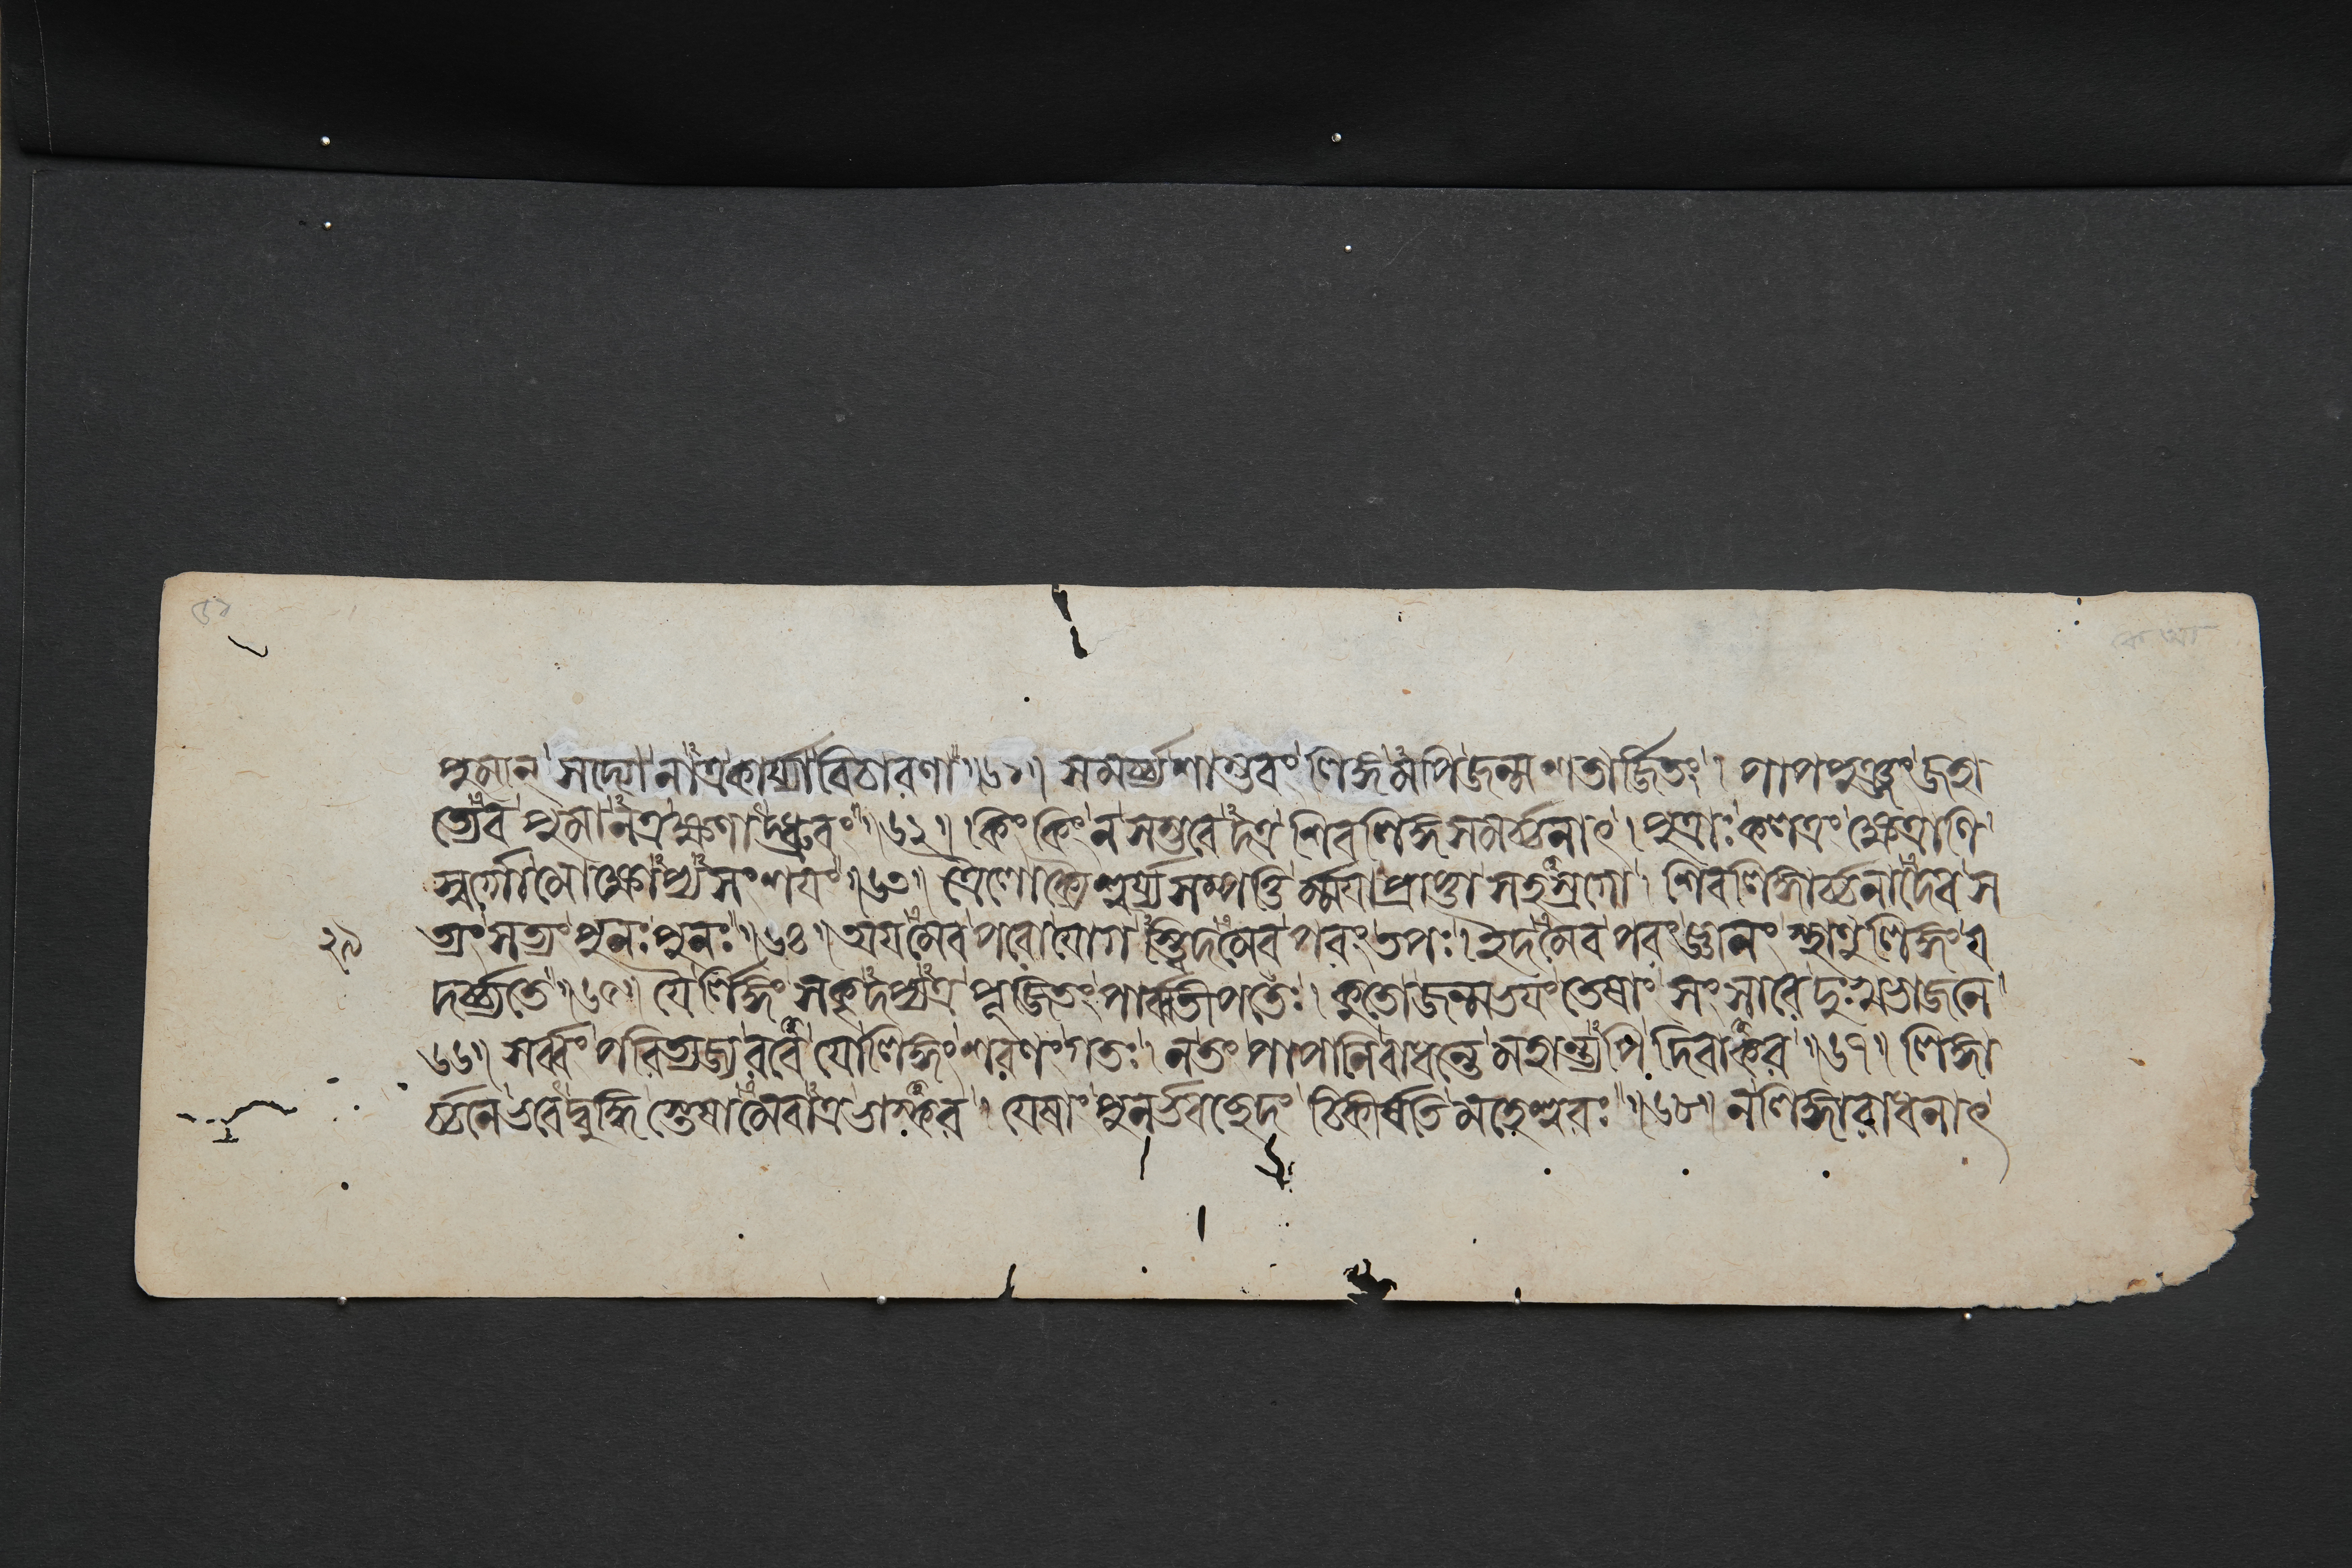 পুমান্ সদ্যো নাত্র কার্য্যা বিচারণা ॥৬১॥ সমর্চ্চ্য শাম্ভবং লিঙ্গমপি জন্মশতার্জ্জিতং । পাপপুঞ্জং জহা
ত্যেব পুমানত্র ক্ষণাদ্ধ্রুবং ॥৬২॥ কিং কিং ন সম্ভবেদত্র শিবলিঙ্গসমর্চ্চনাৎ । পুত্রাঃ কলত্রং ক্ষেত্রাণি
স্বর্গো মোক্ষোপ্যসংশয়ং ॥৬৩॥ ত্রৈলোক্যৈশ্বর্য্যসম্পত্তির্ম্ময়া প্রাপ্তা সহস্রগো । শিবলিঙ্গার্চ্চনাদেব স
২৯ ত্যং সত্যং পুনঃ পুনঃ ॥৬৪॥ অয়মেব পরো যোগস্ত্বিদমেব পরং তপঃ । ইদমেব পরং জ্ঞানং স্থাণুলিঙ্গং য
দর্চ্চ্যতে ॥৬৫॥ যৈর্লিঙ্গং সকৃদপ্যত্র পূজিতং পার্ব্বতীপতেঃ । কুতো জন্মভয়ং তেষাং সংসারে দুঃখভাজনে
৬৬॥ সর্ব্বং পরিত্যজ্য রবে যো লিঙ্গং শরণং গতঃ । ন তং পাপানি বাধন্তে মহান্ত্যপি দিবাকর ॥৬৭॥ লিঙ্গা
র্চ্চনে ভবেদ্বুদ্ধিস্তেষামেবাত্র ভাস্কর । যেষাং পুনর্ভবচ্ছেদং চিকীর্ষতি মহেশ্বরঃ ॥৬৮॥ ন লিঙ্গারাধনাৎ